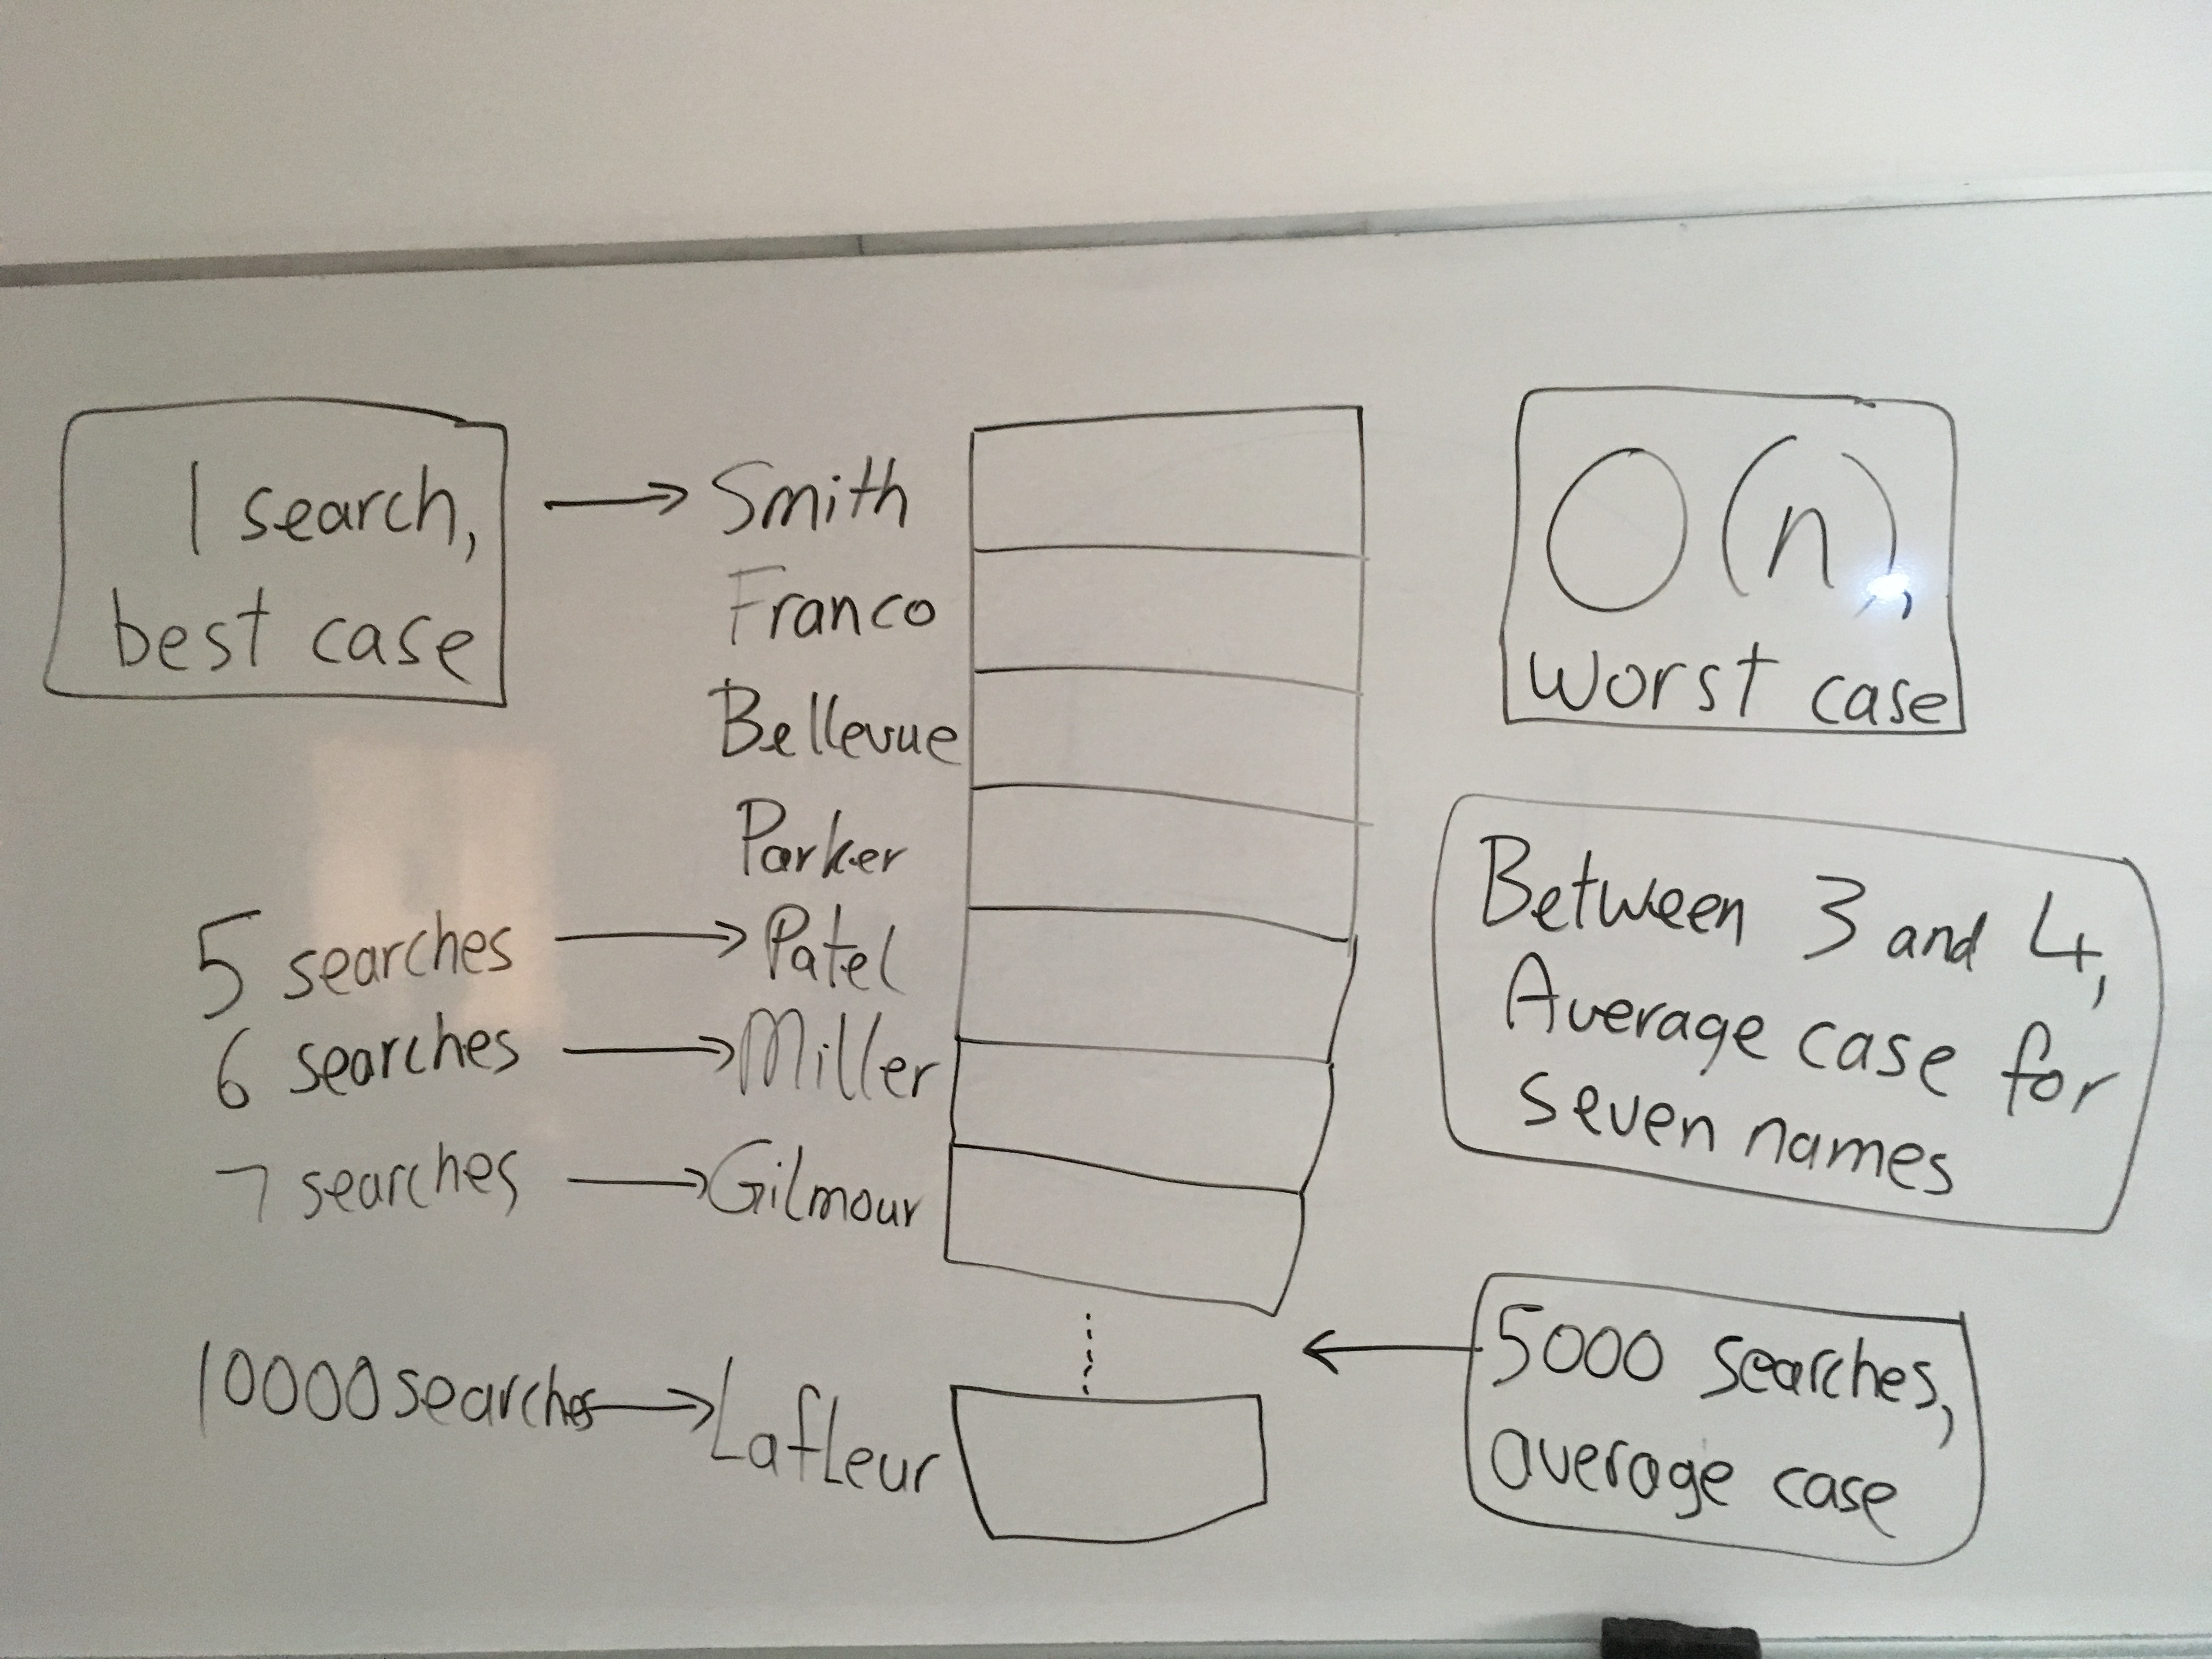 1 search,
best case
Smith
Franco
Bellevue
Parker
5 searches
Patel
6 searches
Miller
7 searches
Gilmour
10000 searches
Lafleur
O(n),
worst case
Between 3 and 4,
Average case for
seven names
5000 searches,
average case